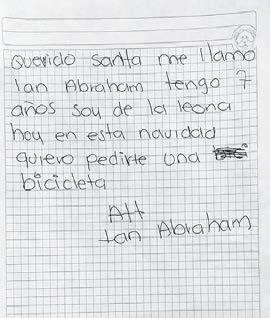 Querido santa me llamo
Ian Abraham tengo 7
años soy de la leona
hoy en esta navidad
quiero pedirte una
bicicleta
Att
Ian Abraham